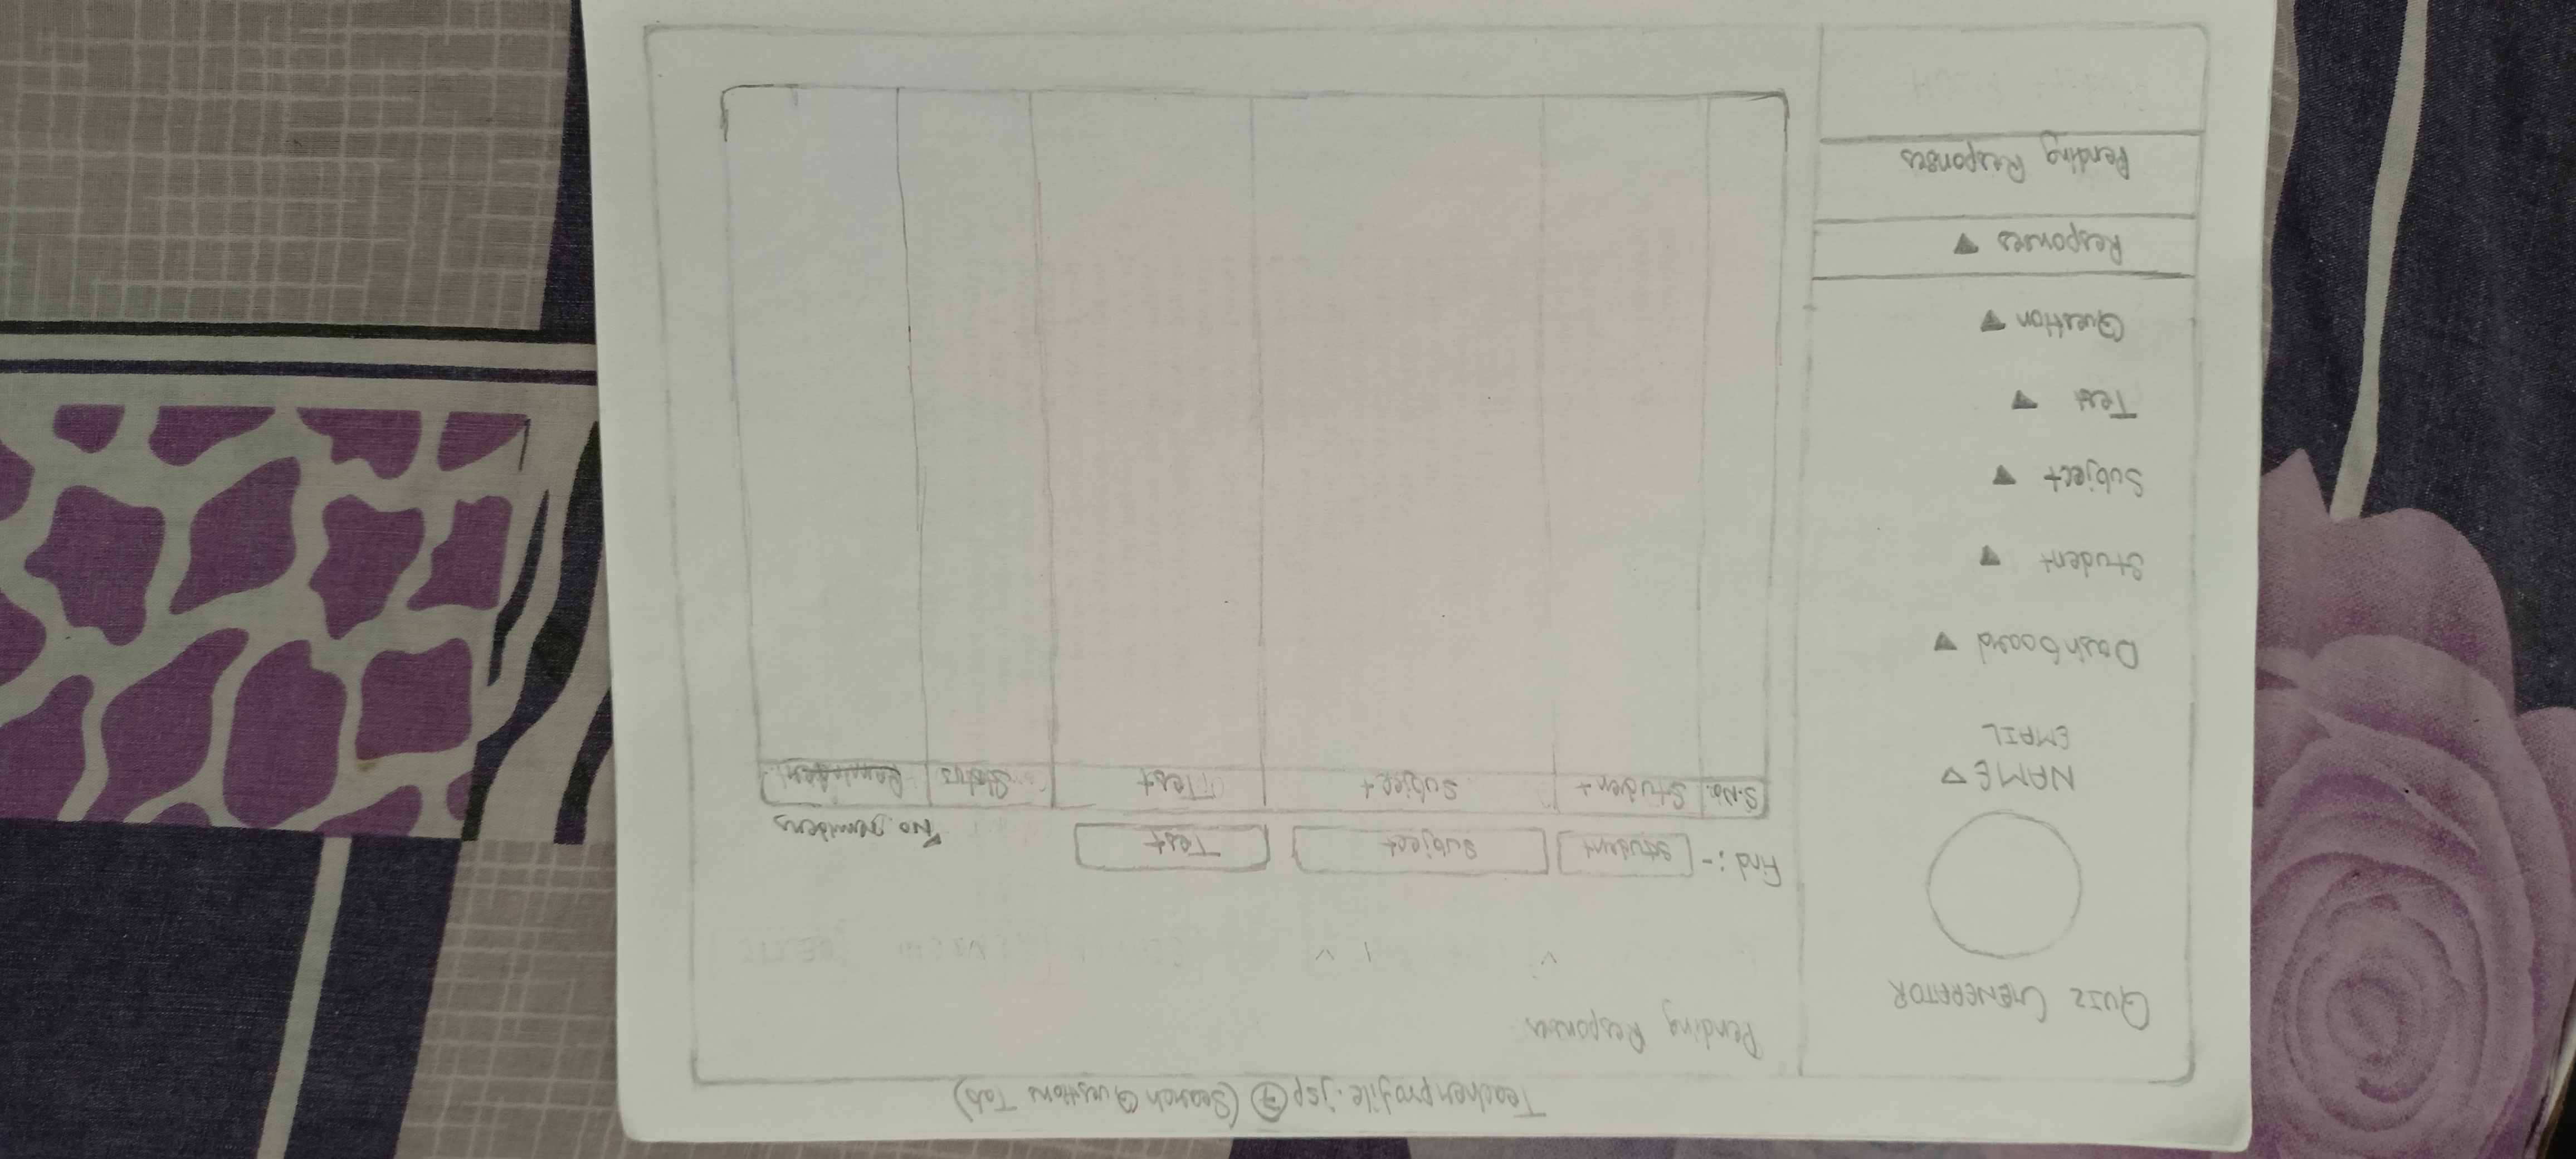 Teacherprofile.jsp 7 (Search Questions Tab)
QUIZ GENERATOR
NAME
EMAIL
Dashboard
Student
Subject
Test
Question
Responses
Pending Responses
Pending Responses
Find:- Student Subject Test
No reminders
S.No. Student Subject Test Status